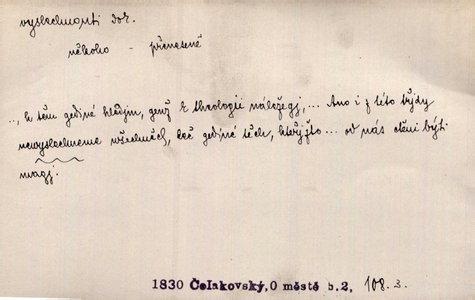 vyslechnouti dok.
někoho - přeneseně
..., k těm gediné hledjm, genž k theologii náležegj,... Ano i z této třjdy
newyslechneme wšechněch, leč gediné těch, kteřjžto ... od nás čteni býti
magj.
1830 Čelakovský, O městě b.2, 108.3.